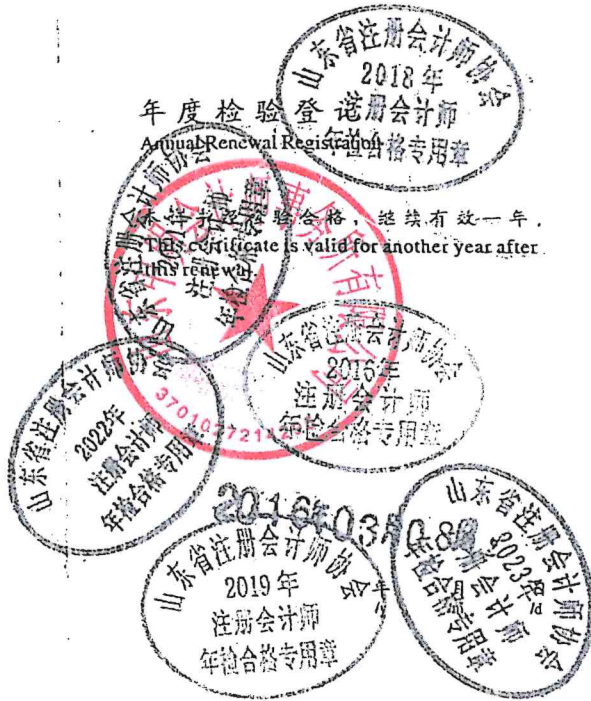 山东省注册会计师协会
2018年
注册会计师
年检合格专用章
年度检验登记
Annual Renewal Registration
本证书经检验合格，继续有效一年．
This certificate is valid for another year after
this renewal.
山东省注册会计师协会
注册会计师
年检合格专用章
会计师事务所有限公司
山东省注册会计师协会
2016年
注册会计师
年检合格专用章
山东省注册会计师协会
2022年
注册会计师
年检合格专用章
2016年03月08日
山东省注册会计师协会
2019年
注册会计师
年检合格专用章
山东省注册会计师协会
2023年
注册会计师
年检合格专用章